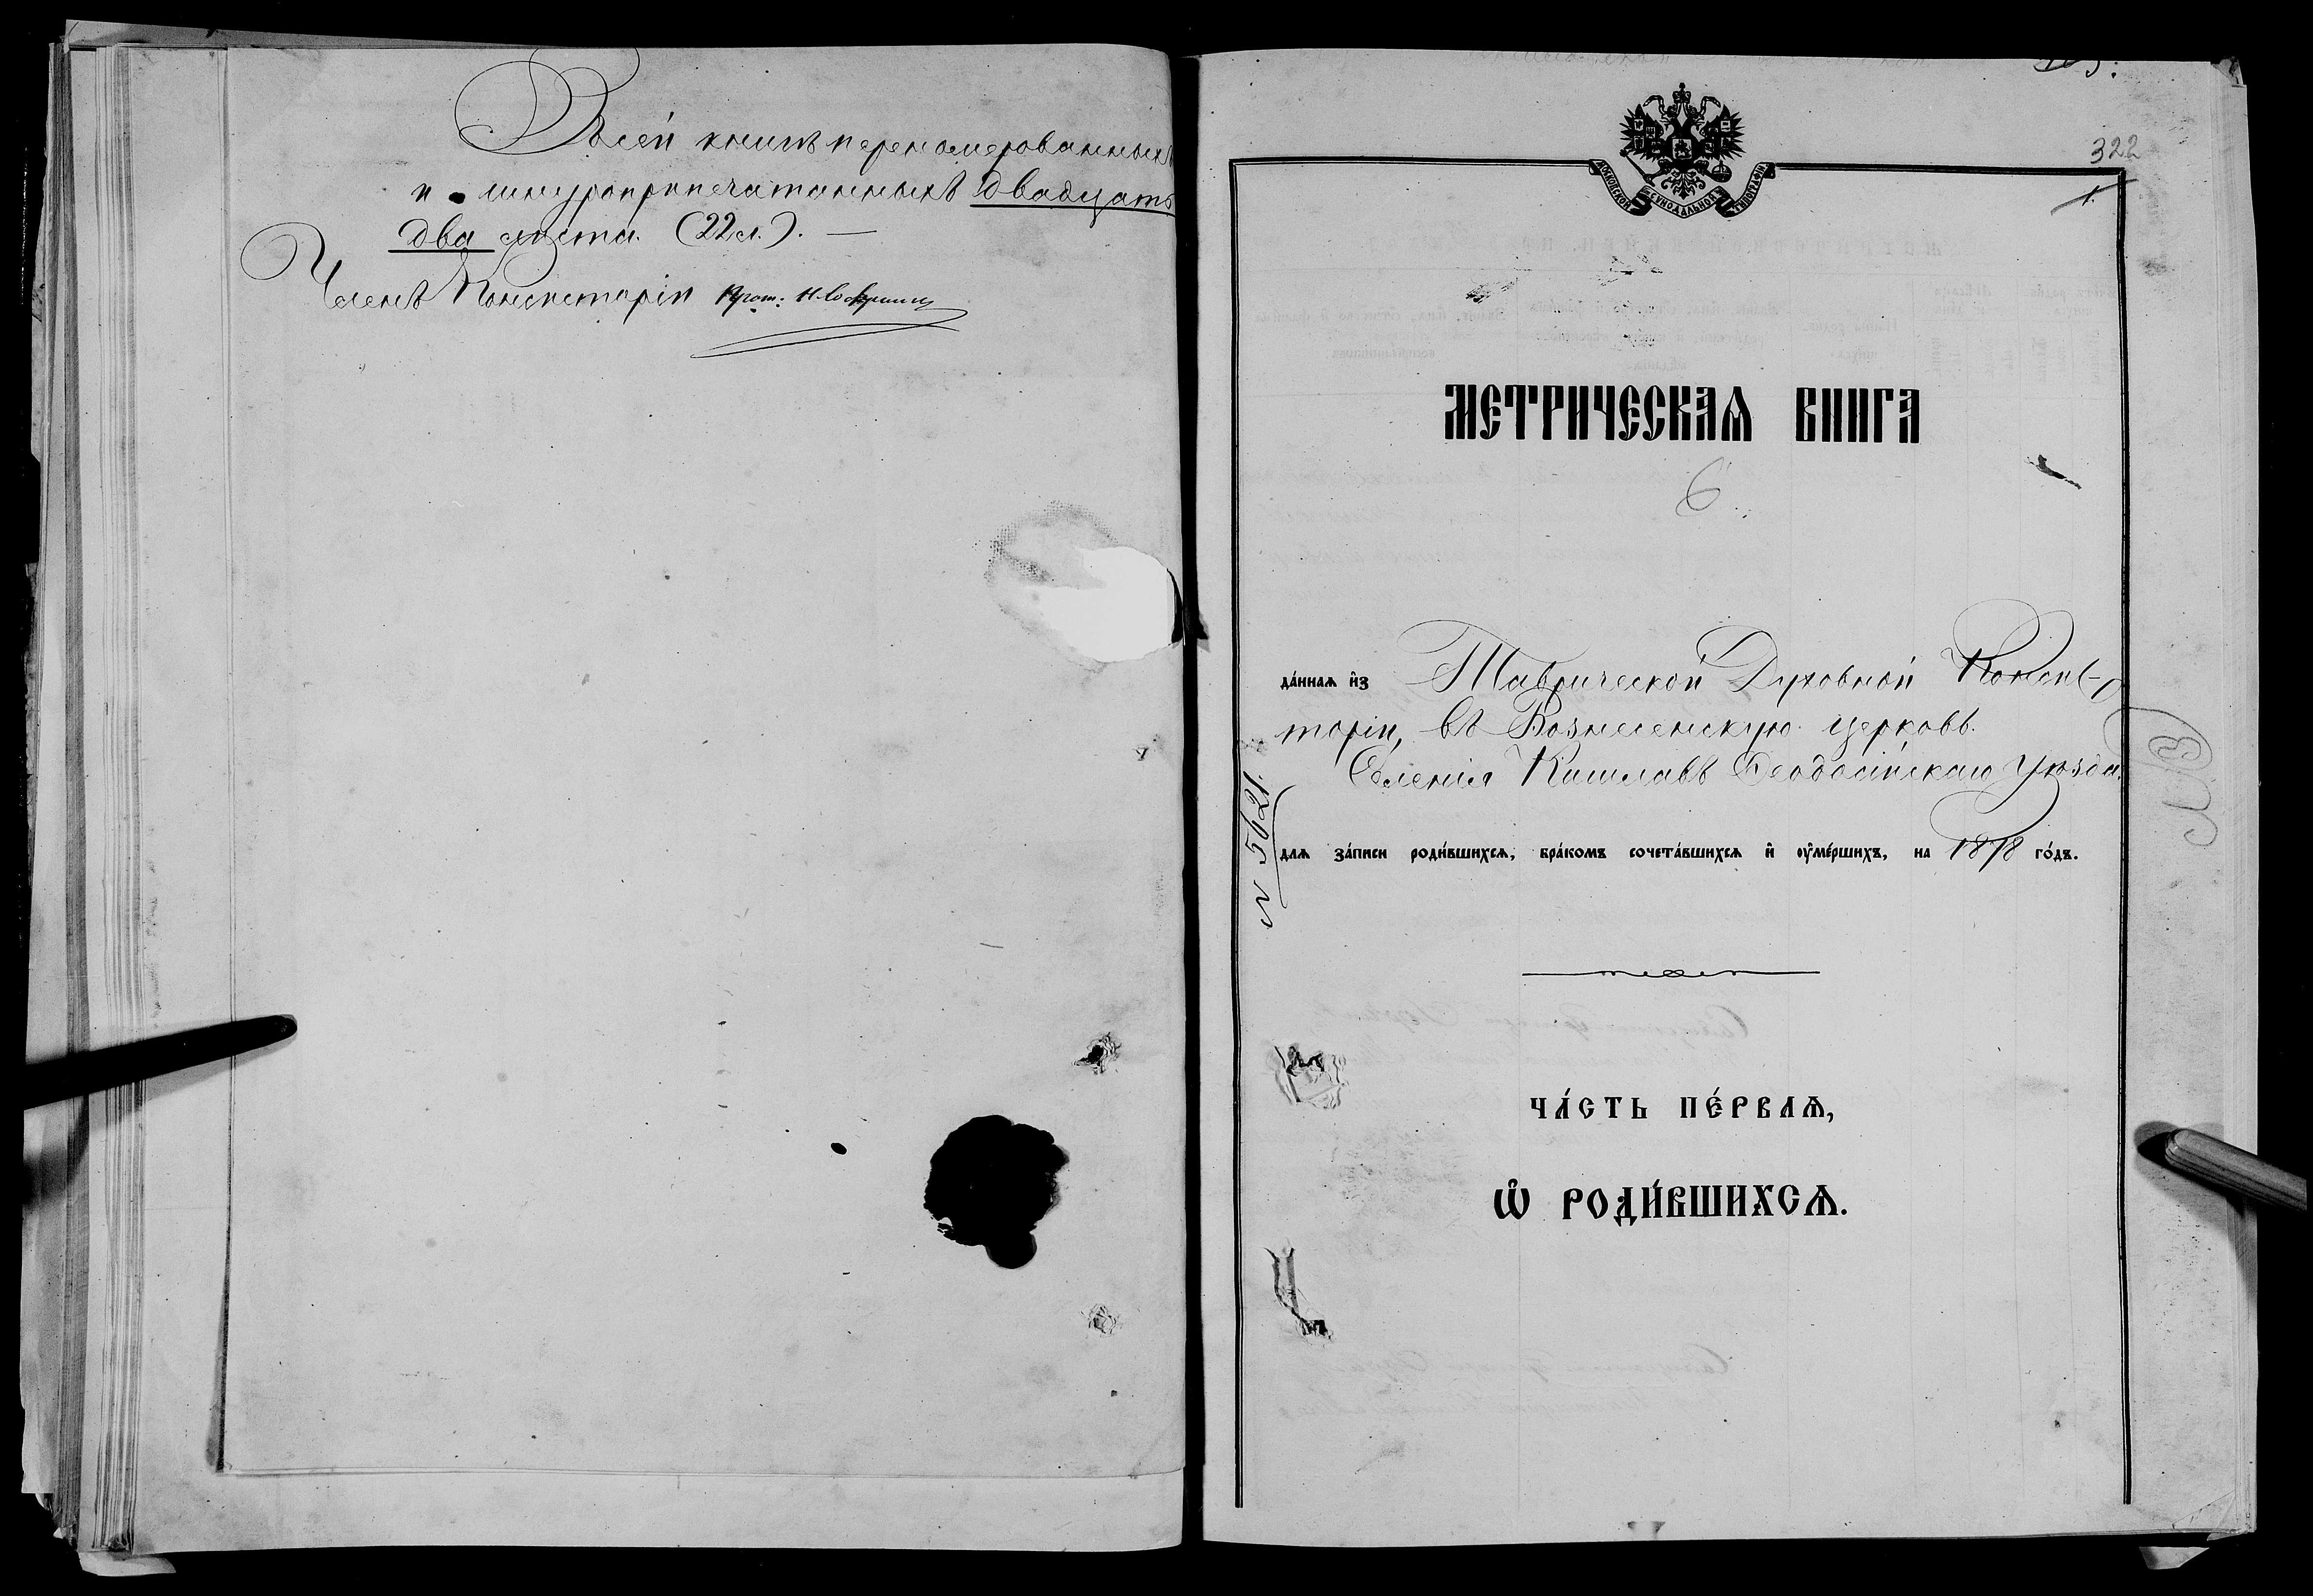 Въ сей книгѣ перенумерованныхъ
и шнуроприпечатанныхъ двадцать
два листа. (22 л.). —
Членъ Консисторіи Прот:
322
1.
МОСКОВСКОЙ СѴНОДАЛЬНОЙ ТИПОГРАФІИ
МЕТРИЧЕСКАѦ КНИГА
6.
да́ннаѧ и҆з Таврической Духовной Консис-
торіи, въ Вознесенскую церковь
Селенія Кишлавъ Ѳеодосійскаго Уѣзда.
для за́писи роди́вшихсѧ, бра́комъ сочета́вшихсѧ и҆ ᲂу҆ме́ршихъ, на 1878 го́дъ.
№ 5621.
ЧА́СТЬ ПЕ́РВАѦ,
Ѡ҆ РОДИ́ВШИХСѦ.